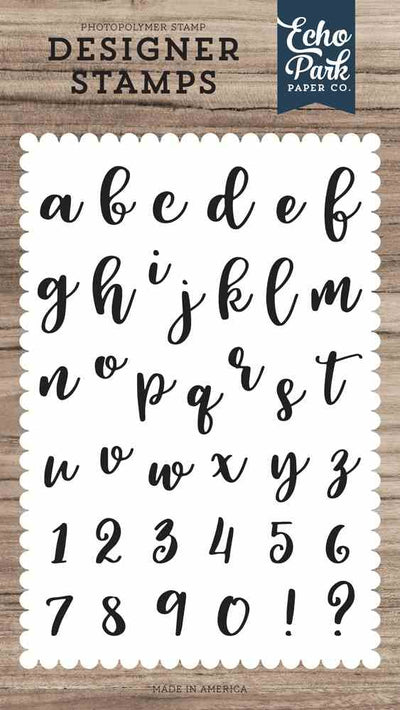 PHOTOPOLYMER STAMP
DESIGNER
STAMPS
Echo
Park
PAPER CO.
a b c d e f
g h i j k l m
n o p q r s t
u v w x y z
1 2 3 4 5 6
7 8 9 0 ! ?
MADE IN AMERICA